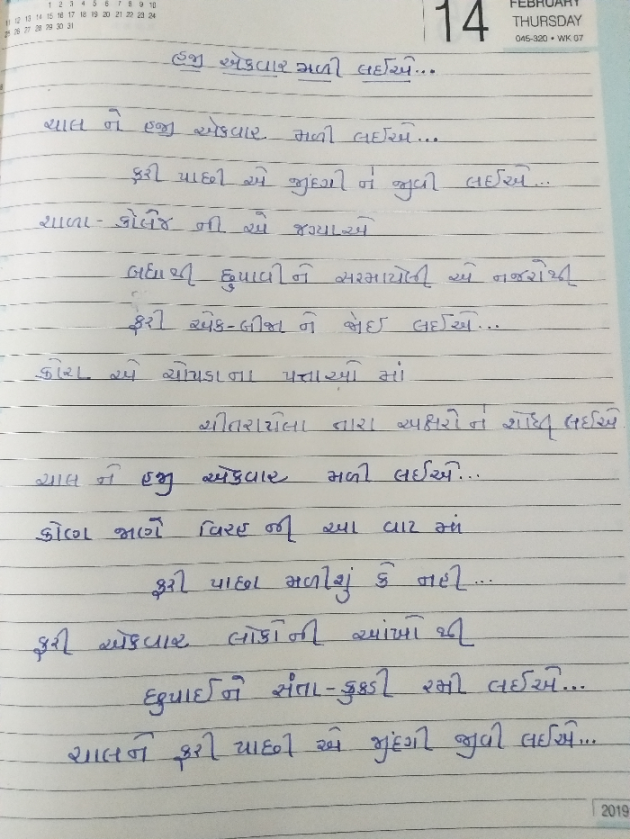 1 2 3 4 5 6 7 8 9 10
11 12 13 14 15 16 17 18 19 20 21 22 23 24
25 26 27 28 29 30 31
14
FEBRUARY
THURSDAY
045-320 • WK 07
હજી એકવાર મળી લઈએ...
ચાલ ને હજી એકવાર મળી લઈએ...
ફરી પાછી એ જીંદગી ને જીવી લઈએ...
શાળા - કોલેજ ની એ જગ્યાએ
બધાથી છુપાવીને સરમાયેલી એ નજરોથી
ફરી એક-બીજા ને જોઈ લઈએ...
કોરા એ ચોપડાના પત્તાઓ માં
ચીતરાયેલા તારા અક્ષરોને શોધી લઈએ
ચાલ ને હજી એકવાર મળી લઈએ...
કોણ જાણે વિરહ ની આ વાટ માં
ફરી પાછા મળીશું કે નહી...
ફરી એકવાર લોકોની આંખો થી
છુપાઈને સંતા-કુકડી રમી લઈએ...
ચાલને ફરી પાછી એ જીંદગી જીવી લઈએ...
2019